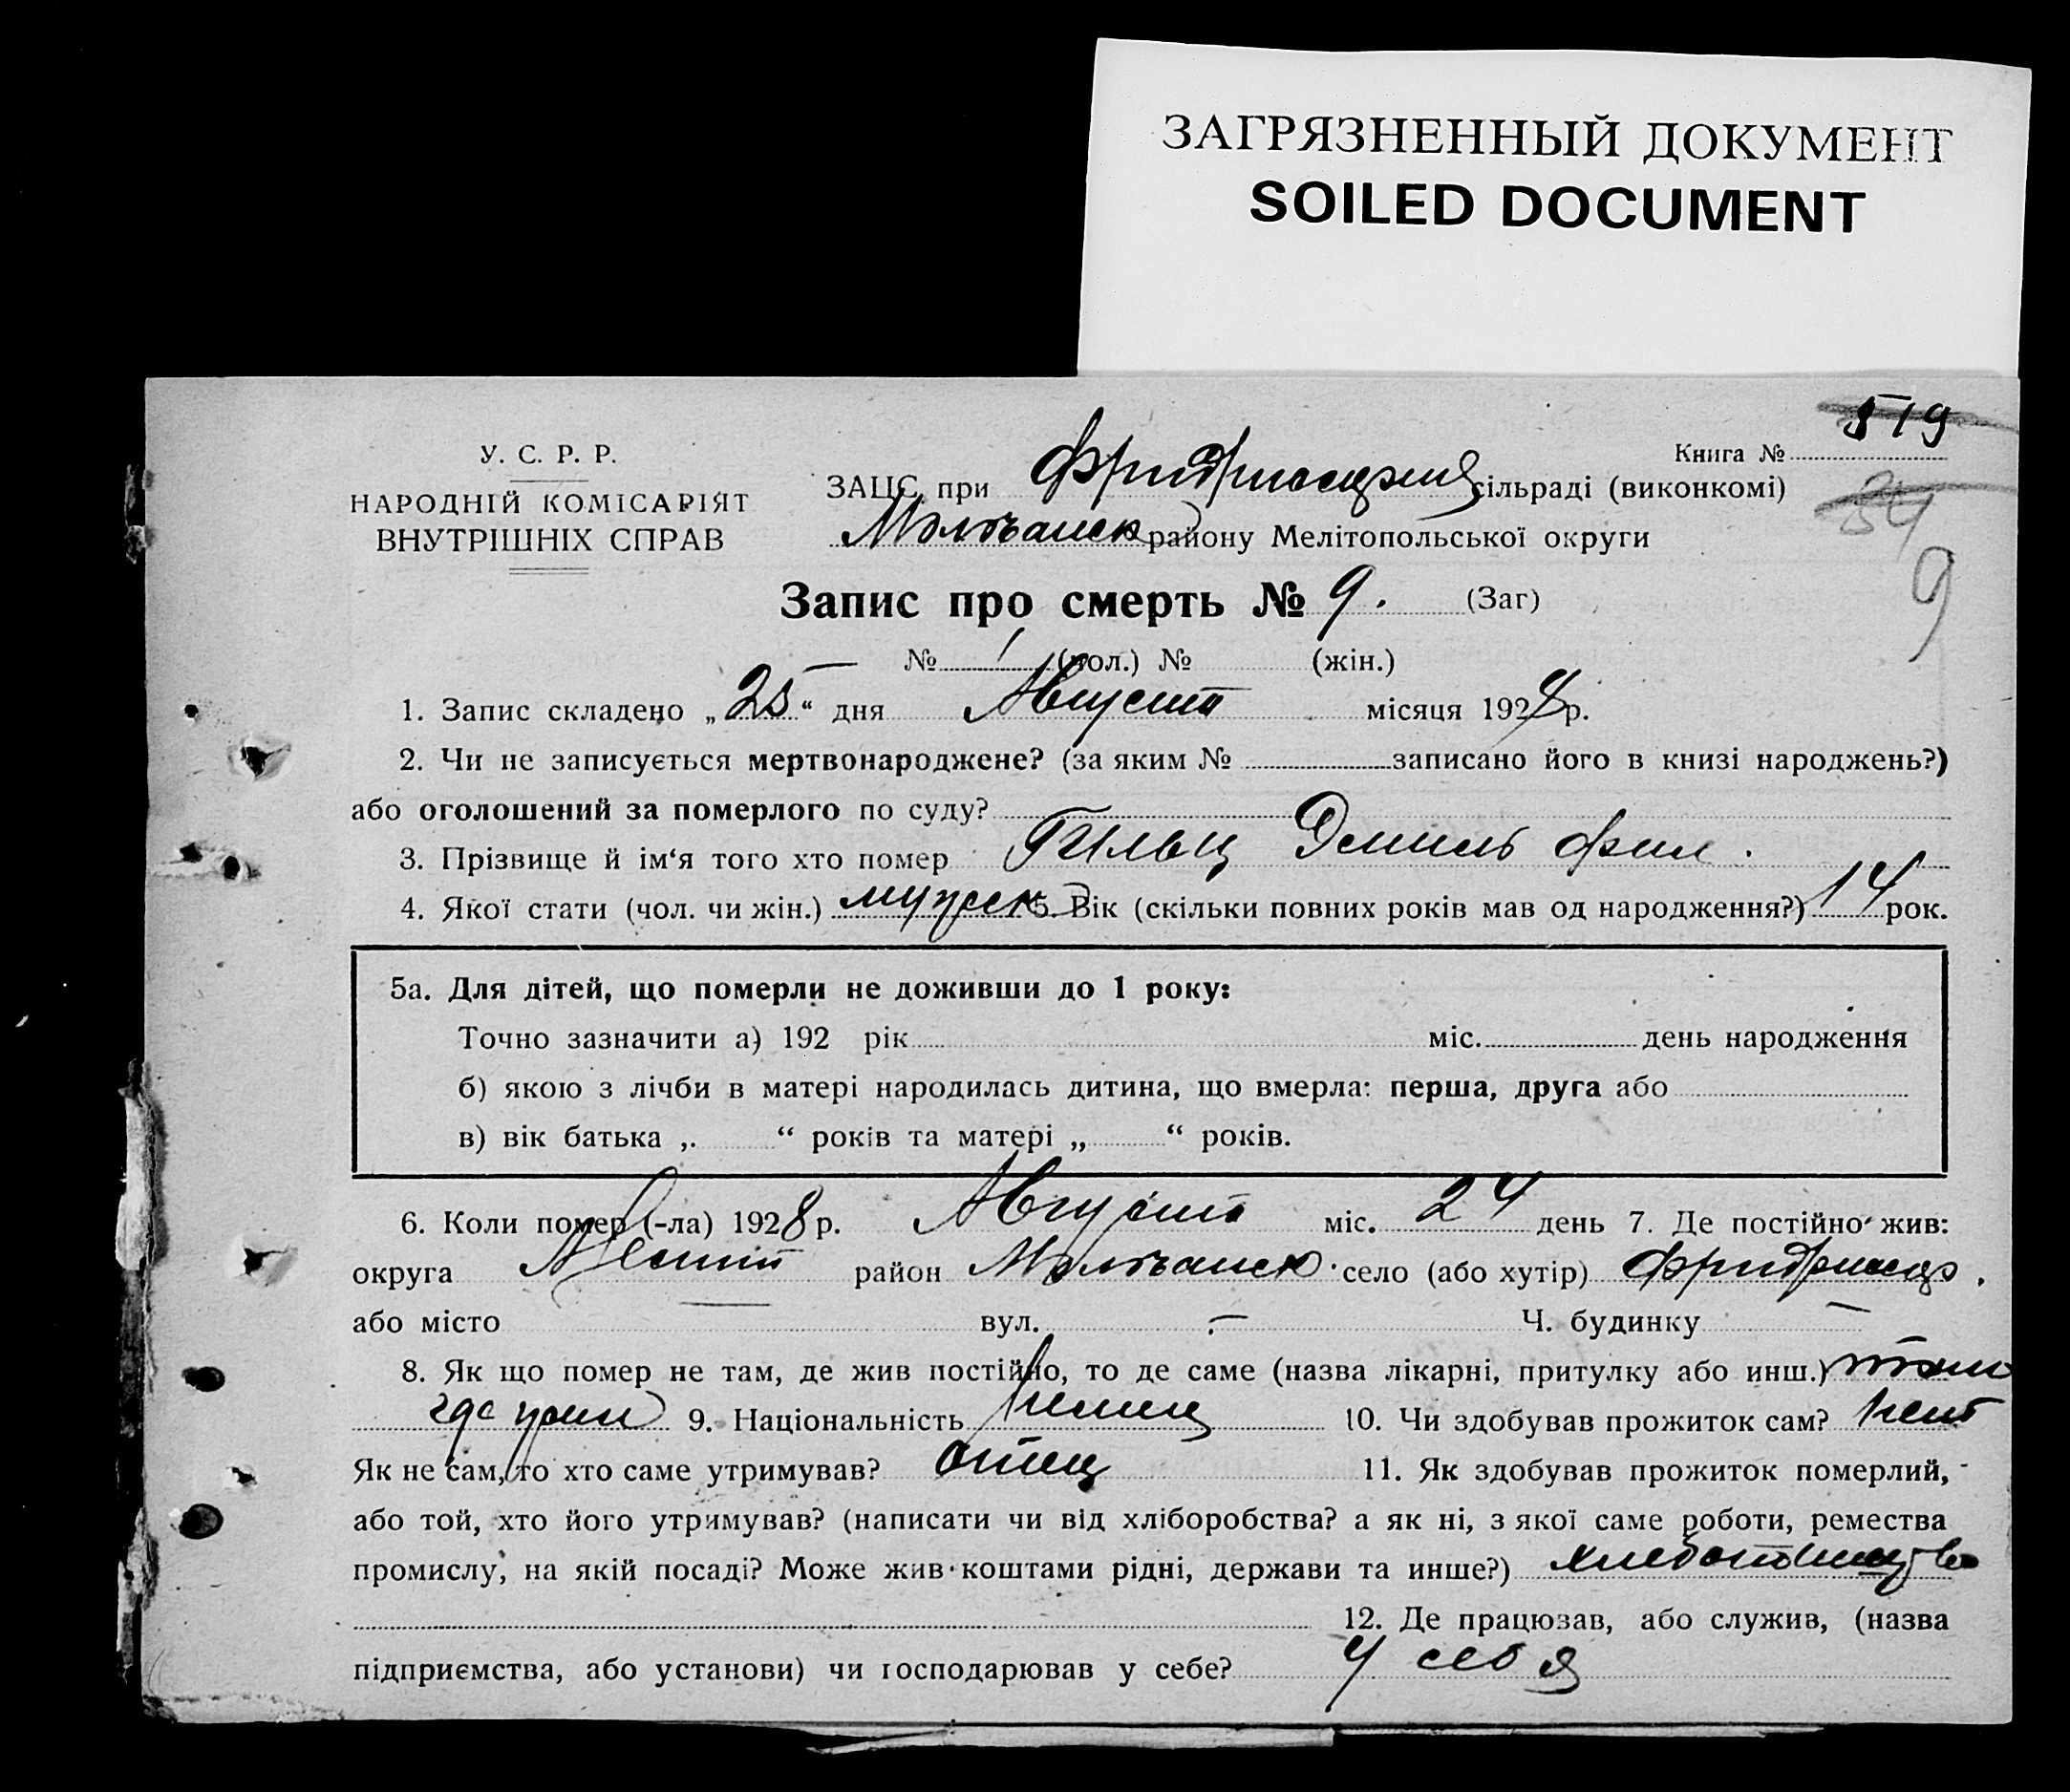 ЗАГРЯЗНЕННЫЙ ДОКУМЕНТ
SOILED DOCUMENT
519
У. С. Р. Р.
Книга №
НАРОДНІЙ КОМІСАРІЯТ
ВНУТРІШНІХ СПРАВ
ЗАЦС при сільраді (виконкомі)
34
району Мелітопольської округи
9
Запис про смерть № 9. (Заг)
№ 1 (чол.) № (жін.)
1. Запис складено „25“ дня Августа місяця 1928р.
2. Чи не записується мертвонароджене? (за яким № записано його в книзі народжень?)
або оголошений за померлого по суду?
3. Прізвище й ім‘я того хто помер Гильц Эмиль Фил.
4. Якої стати (чол. чи жін.) мужск 5. Вік (скільки повних років мав од народження?) 14 рок.
5а. Для дітей, що померли не доживши до 1 року:
Точно зазначити а) 192 рік міс. день народження
б) якою з лічби в матері народилась дитина, що вмерла: перша, друга або
в) вік батька „. “ років та матері „ “ років.
6. Коли помер (-ла) 1928р. Августа міс. 24 день 7. Де постійно жив:
округа район село (або хутір)
або місто вул. — Ч. будинку —
8. Як що помер не там, де жив постійно, то де саме (назва лікарні, притулку або инш.) там
где 9. Національність немец 10. Чи здобував прожиток сам? нет
Як не сам, то хто саме утримував? отец 11. Як здобував прожиток померлий,
або той, хто його утримував? (написати чи від хліборобства? а як ні, з якої саме роботи, ремества
промислу, на якій посаді? Може жив коштами рідні, держави та инше?)
12. Де працював, або служив, (назва
підприємства, або установи) чи господарював у себе? у себя